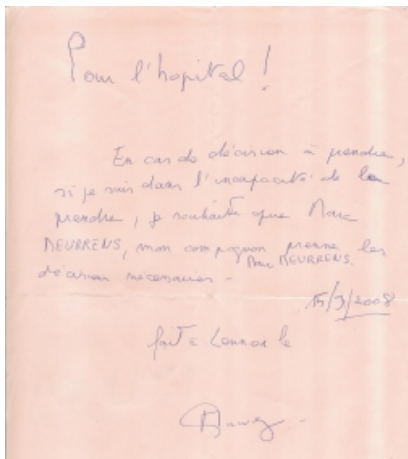 Pour l'hopital !
En cas de décision à prendre,
si je suis dans l'incapacité de la
prendre, je souhaite que Marc
MEURRENS, mon compagnon prenne les
Marc MEURRENS.
décision nécessaires -
15/3/2008
fait à le